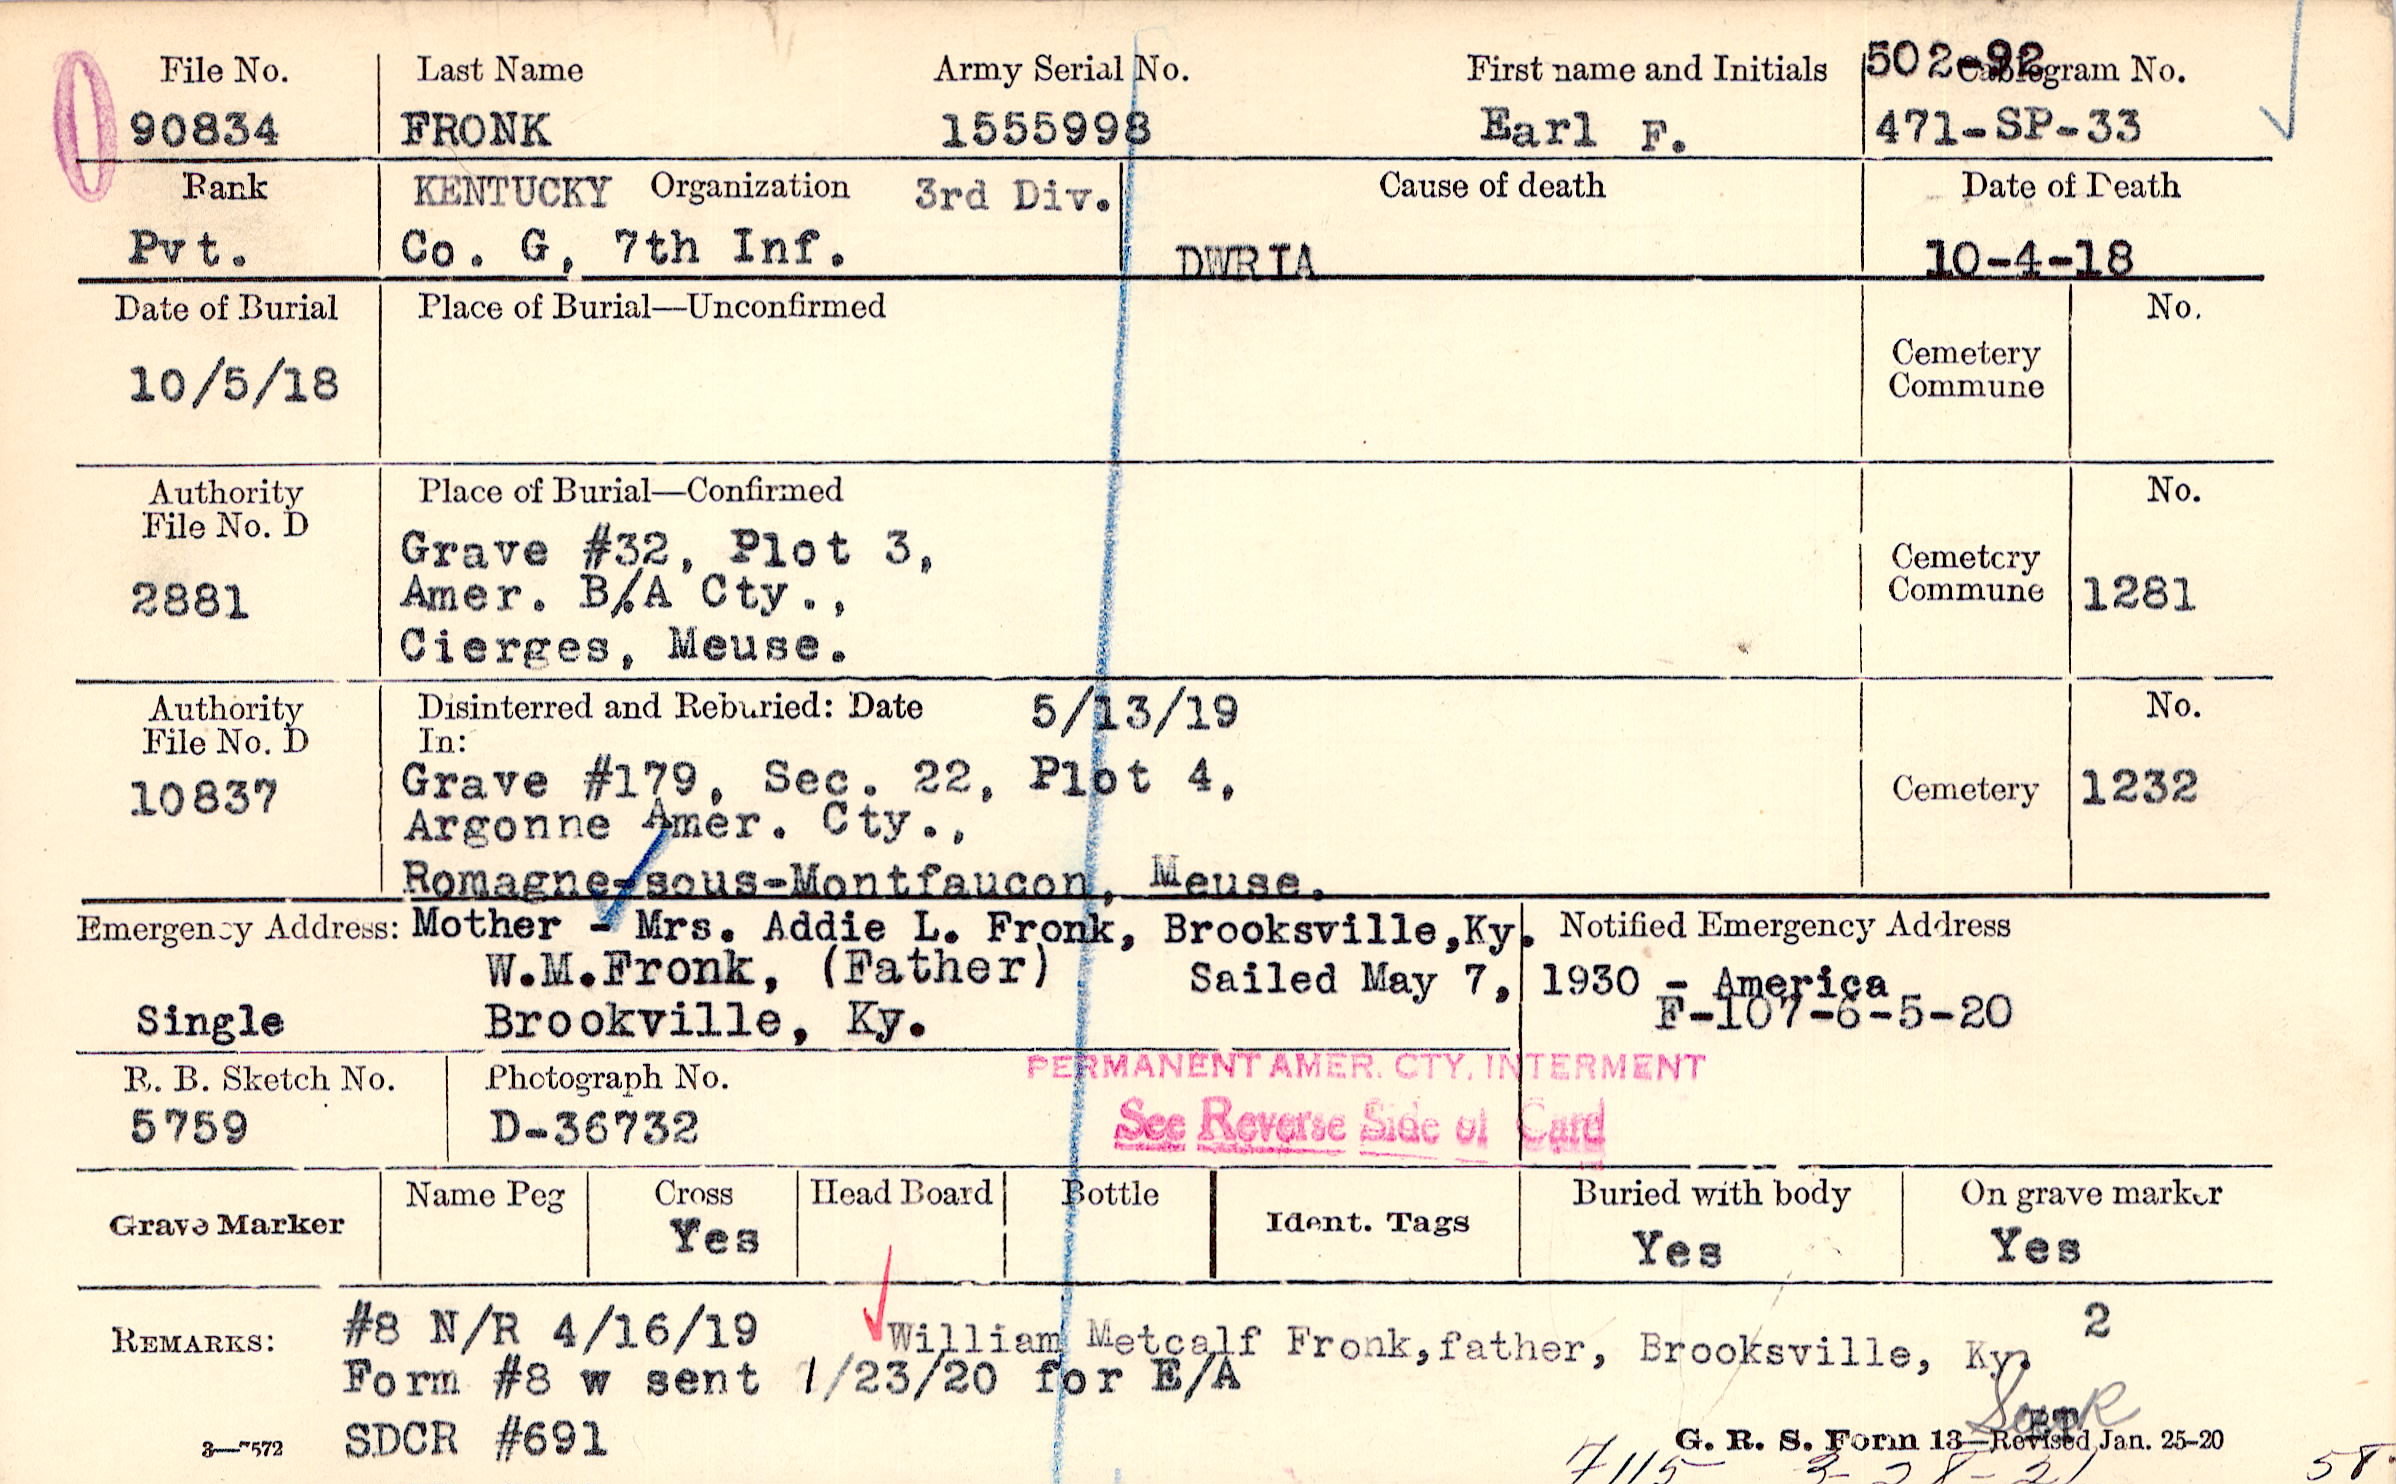 File No. Last Name Army Serial No. First name and Initials 502-92 Cablegram No.
90834 FRONK 1555998 Earl F. 471-SP-33
Rank KENTUCKY Organization 3rd Div. Cause of death Date of Death
Pvt. Co. G, 7th Inf. DWRIA 10-4-18
Date of Burial Place of Burial—Unconfirmed No.
10/5/18 Cemetery
Commune
Authority Place of Burial—Confirmed No.
File No. D
Grave #32, Plot 3, Cemetery
2881 Amer. B/A Cty., Commune 1281
Cierges, Meuse.
Authority Disinterred and Reburied: Date 5/13/19 No.
File No. D In:
10837 Grave #179, Sec. 22, Plot 4, Cemetery 1232
Argonne Amer. Cty.,
Romagne-sous-Montfaucon, Meuse.
Emergency Address: Mother - Mrs. Addie L. Fronk, Brooksville,Ky. Notified Emergency Address
W.M.Fronk, (Father) Sailed May 7, 1930 - America
Single Brookville, Ky. F-107-6-5-20
PERMANENT AMER. CTY. INTERMENT
R. B. Sketch No. Photograph No.
5759 D-36732 See Reverse Side of Card
Grave Marker Name Peg Cross Head Board Bottle Ident. Tags Buried with body On grave marker
Yes Yes Yes
REMARKS: #8 N/R 4/16/19 William Metcalf Fronk,father, Brooksville, Ky. 2
Form #8 w sent 1/23/20 for E/A
SDCR #691 ET
3—7572 G. R. S. Form 13—Revised Jan. 25-20
7115 3-28-21 58